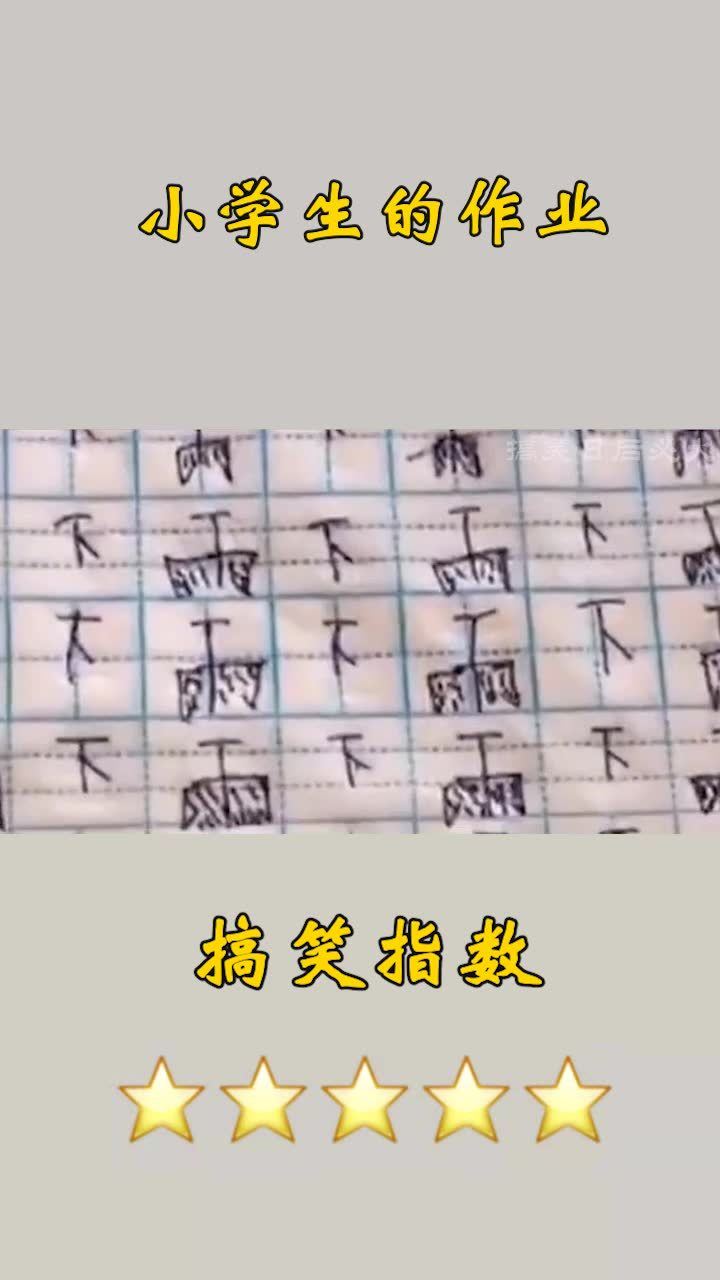 小学生的作业
搞笑日后必
下 雨 下 雨 下
下 雨 下 雨 下
下 雨 下 雨 下
搞笑指数